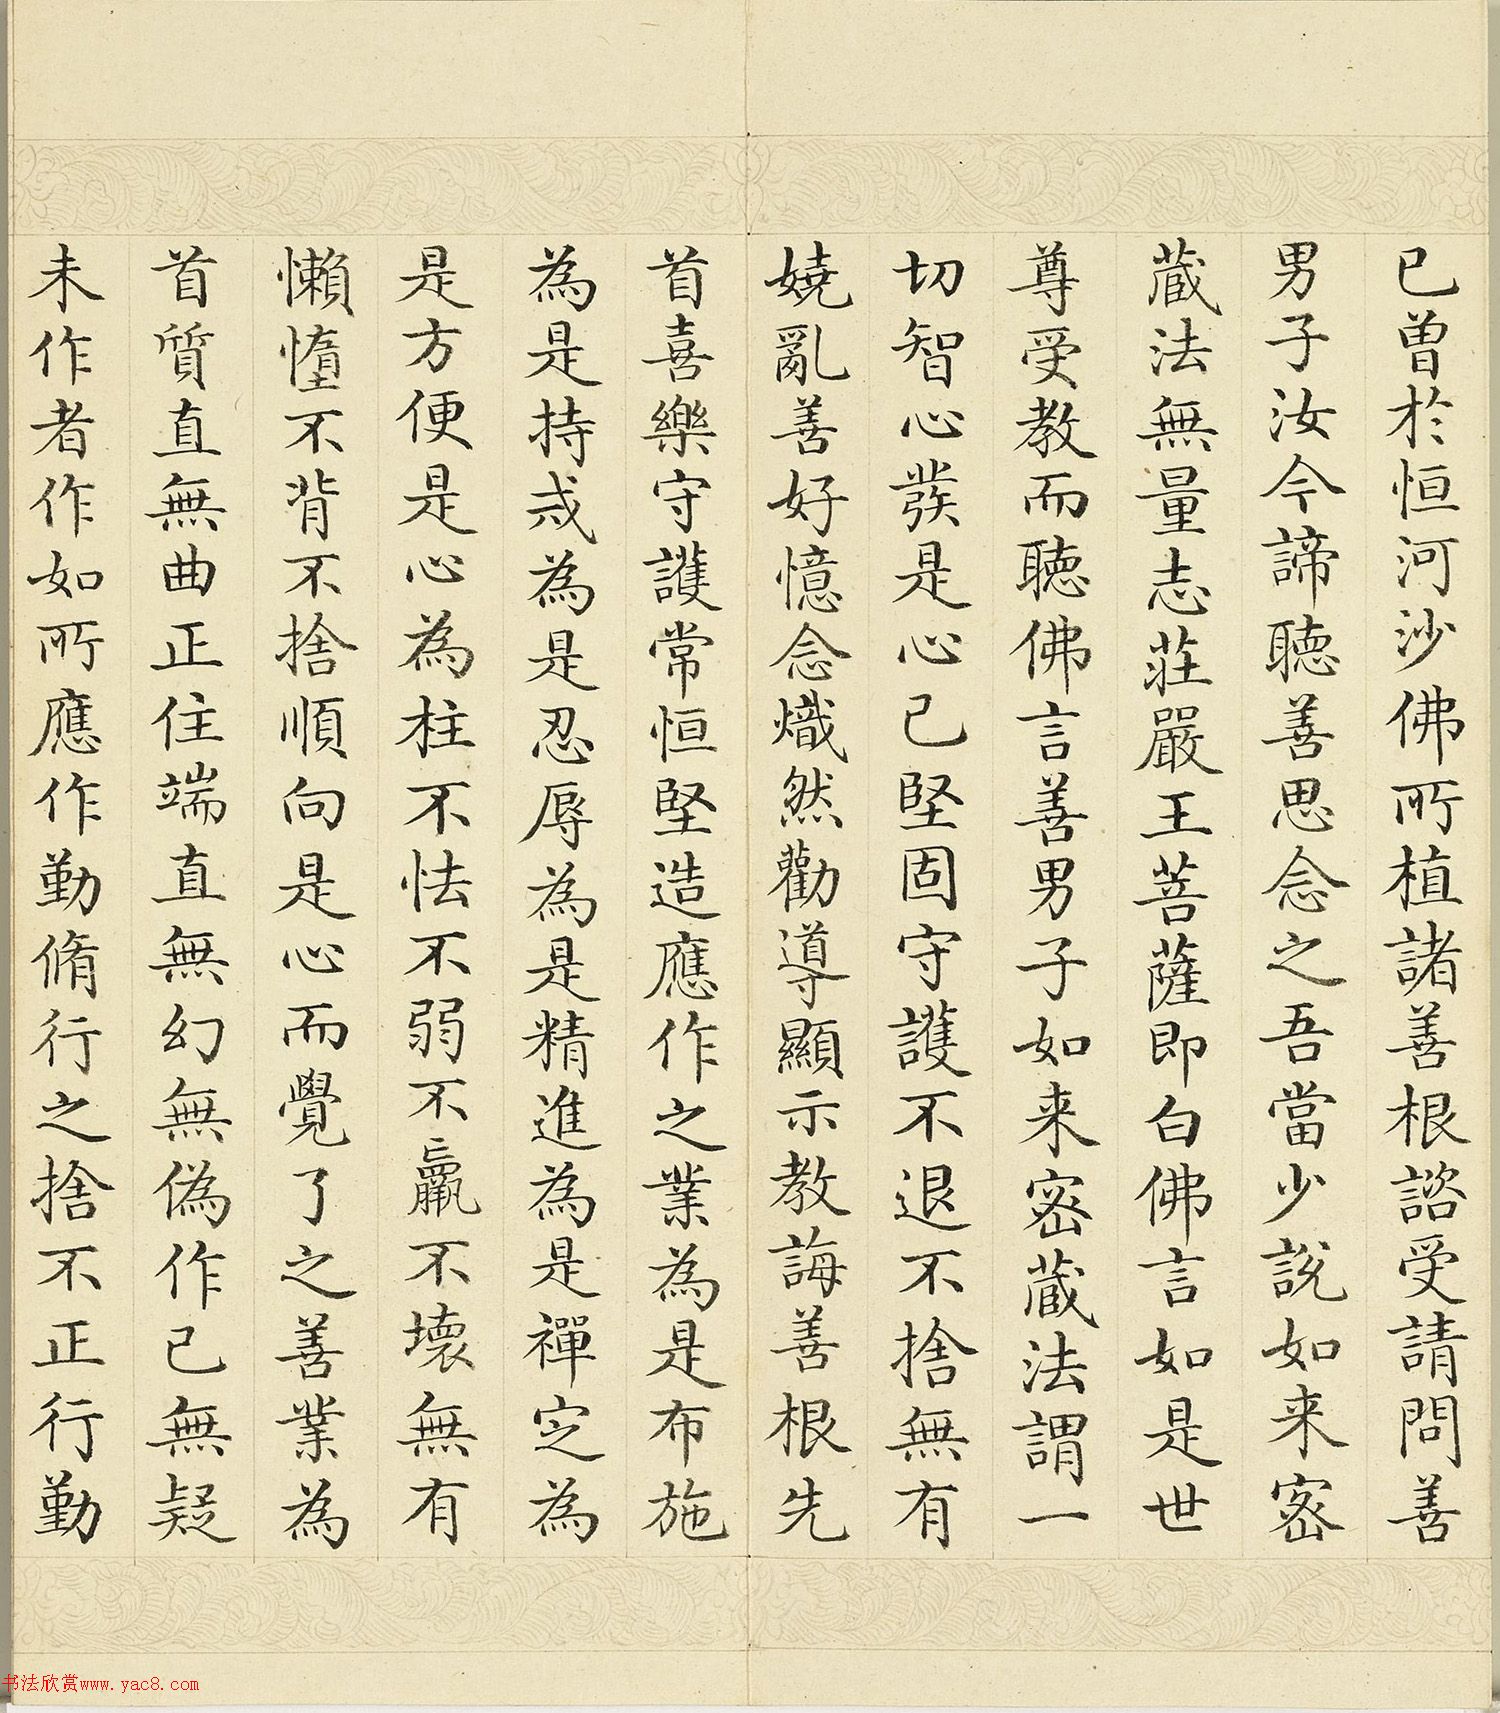 已曾於恒河沙佛所植諸善根諮受請問善
男子汝今諦聽善思念之吾當少說如来密
蔵法無量志莊嚴王菩薩即白佛言如是世
尊受教而聽佛言善男子如来密蔵法謂一
切智心發是心已堅固守護不退不捨無有
嬈亂善好憶念熾然勸導顯示教誨善根先
首喜樂守護常恒堅造應作之業為是布施
為是持戒為是忍辱為是精進為是禪定為
是方便是心為柱不怯不弱不羸不壞無有
懶惰不背不捨順向是心而覺了之善業為
首質直無曲正住端直無幻無偽作已無疑
未作者作如所應作勤脩行之捨不正行勤
书法欣赏www.yac8.com